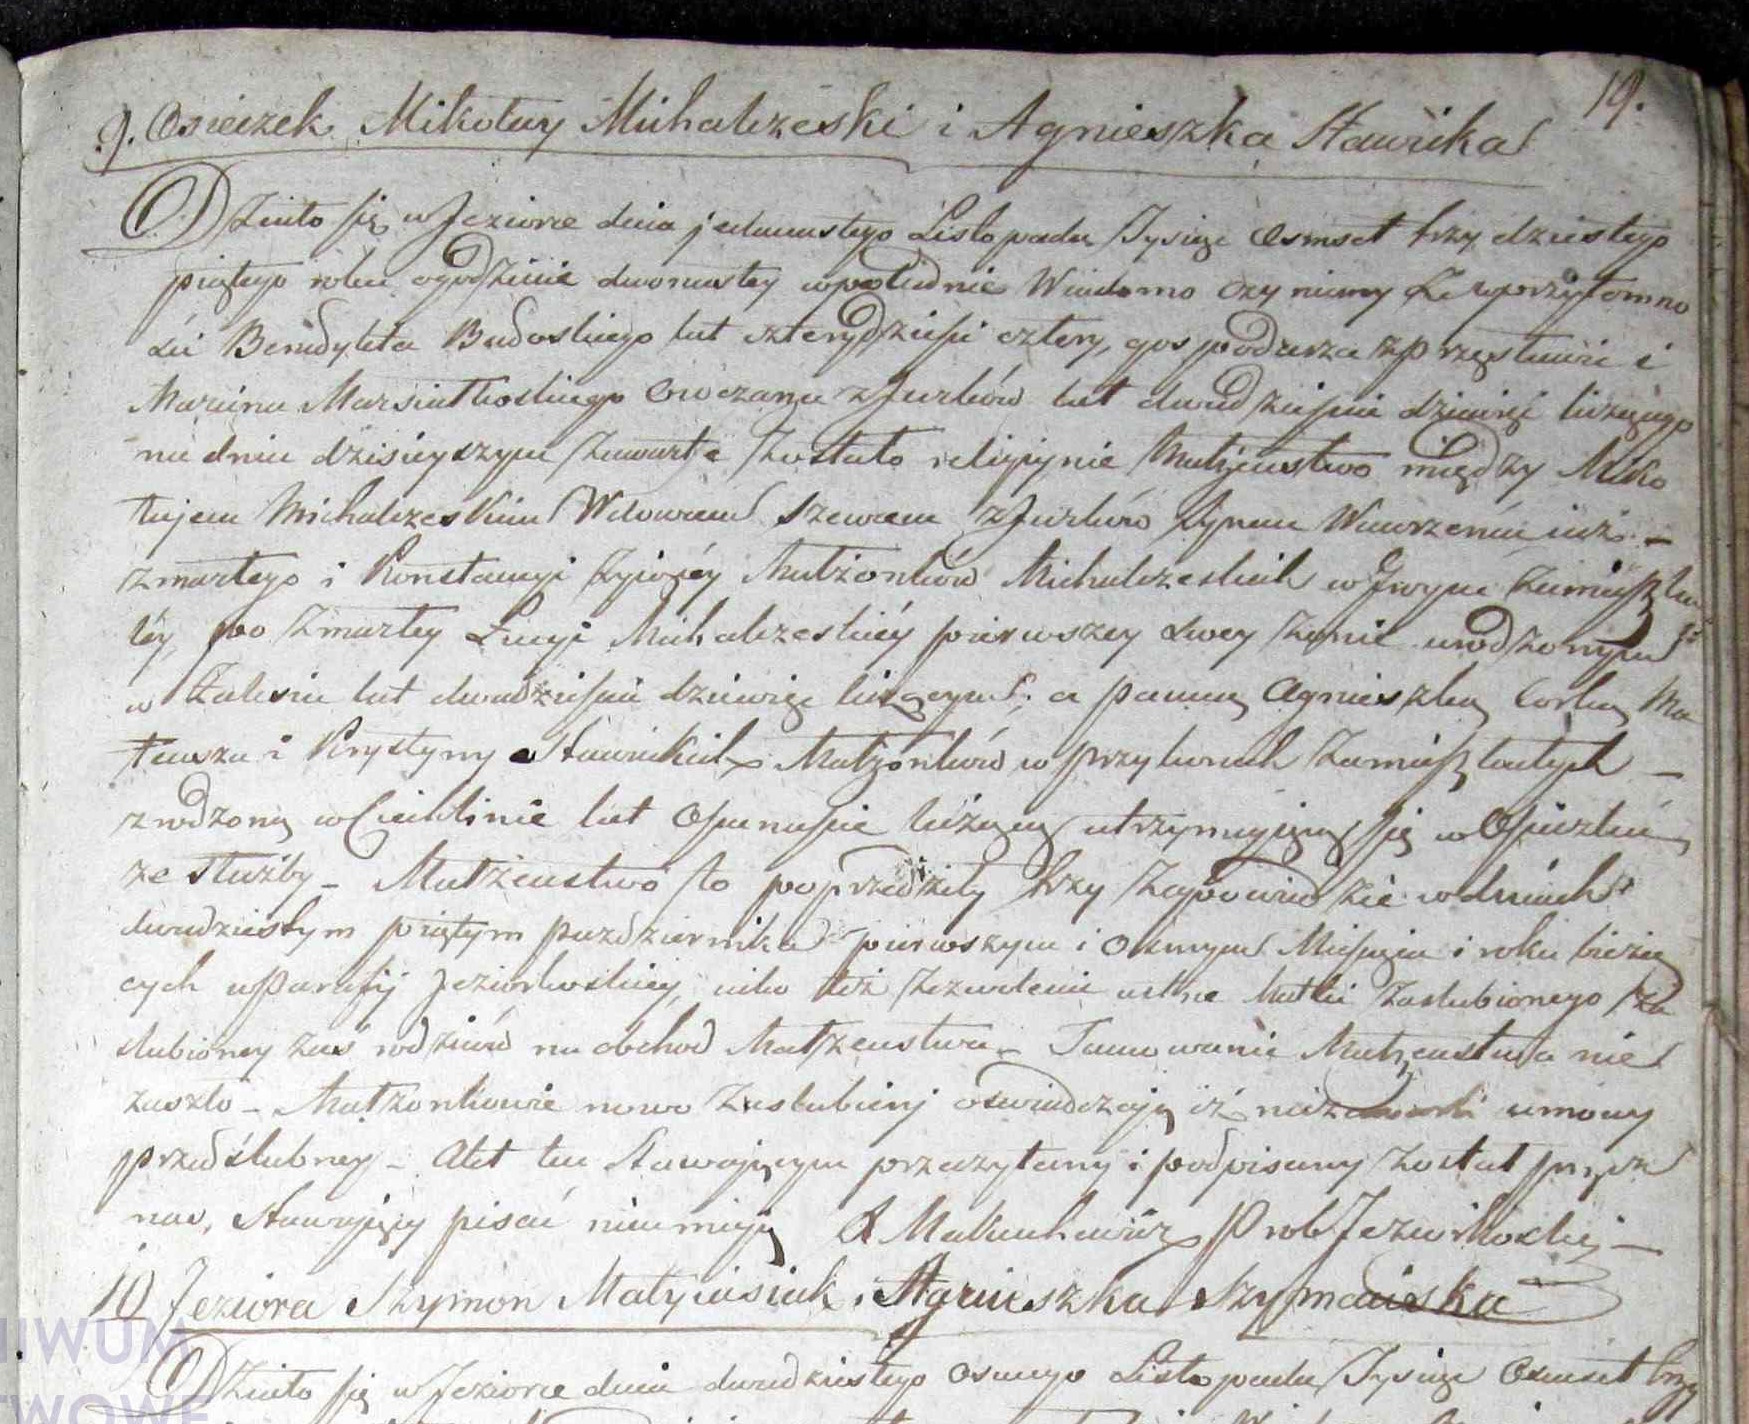 19.
9. Osieczek Mikołay Michalczeski i Agnieszka Stawicka
Działo się w Jeziorce dnia jedenastego Listopada Tysiąc Osmset trzydziestego
piątego roku o godzinie dwonastey w południe Wiadomo czyniemy Ze w przytomno
ści Benedykta Badoskiego lat czterydzieści cztery, gospodarza z Przęsławic i
Marcina Marsiatkoskiego Owczarza z Jurków lat dwadzieścia dziewięć liczącego
na dniu dzisieyszym Zawarte Zostało religiynie Małżeństwo między Miko
łajem Michalczeskim Wdowcem Szewcem z Jurków synem Wawrzeńca już
zmarłego i Konstancyi żyiącéy Małżonków Michalczeskich w Zamieszka
łéy, po Zmarłey Łucyi Michalczeskiéy pierwszey swey Żonie urodzonym
w Zalesiu lat dwadzieścia dziewięć liczącym; a Panną Agnieszką Corką Ma
teusza i Krystyny Stawickich Małżonków w Przykorach Zamieszkałych
zrodzoną w lat Osmnaście liczącą utrzymującą się w Osieczku
ze służby _ Małżeństwo to poprzedziły trzy Zapowiedzie w dniach
dwudziestym piątym pazdziernika pierwszym i osmym Miesiąca i roku bieżą
cych w Parafij Jeziorkoskiey, iako też Zezwolenie ustne Matki Zaslubionego Za
slubioney zaś rodziców na obchod Małżeństwa _ Tamowanie Małżeństwa nie
zaszło _ Małżonkowie nowo Zaslubieni oswiadczają iż niezawarli umowy
przedślubney _ Akt ten Stawającym przeczytany i podpisany Został przez
nas, Stawający pisać nieumieją Prob Jeziorkoski
10 Jeziora Szymon Matyiasiak i Agnieszka Szymańska
Działo się w Jeziorce dnia dwudziestego osmego Listopada Tysiąc Osmset trzy
IWUM
TWOWE